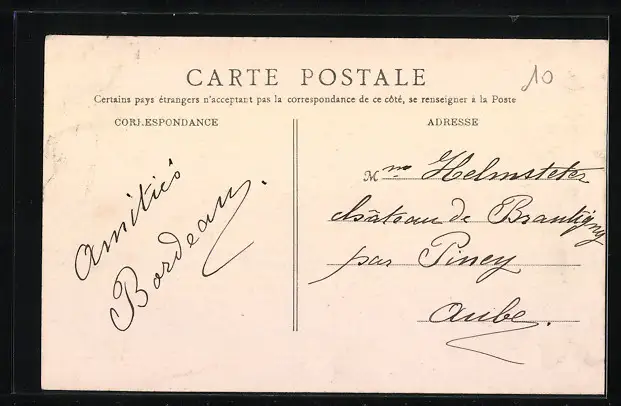 10
CARTE POSTALE
Certains pays étrangers n'acceptant pas la correspondance de ce côté, se renseigner à la Poste
CORRESPONDANCE
Amitiés
Bordeau.
ADRESSE
Mme Helmsteter
château de Brantigny
par Piney
Aube.